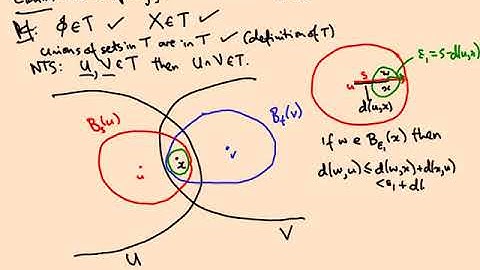 Pf: ϕ∈T ✓ X∈T ✓
unions of sets in T are in T ✓ (definition of T)
NTS: U, V∈T then U∩V∈T.
B_s(u)
B_t(v)
u
x
v
U
V
ε₁=s-d(u,x)
s
w
u
x
d(u,x)
if w∈B_ε₁(x) then
d(w,u)≤d(w,x)+d(x,u)
<ε₁+d(